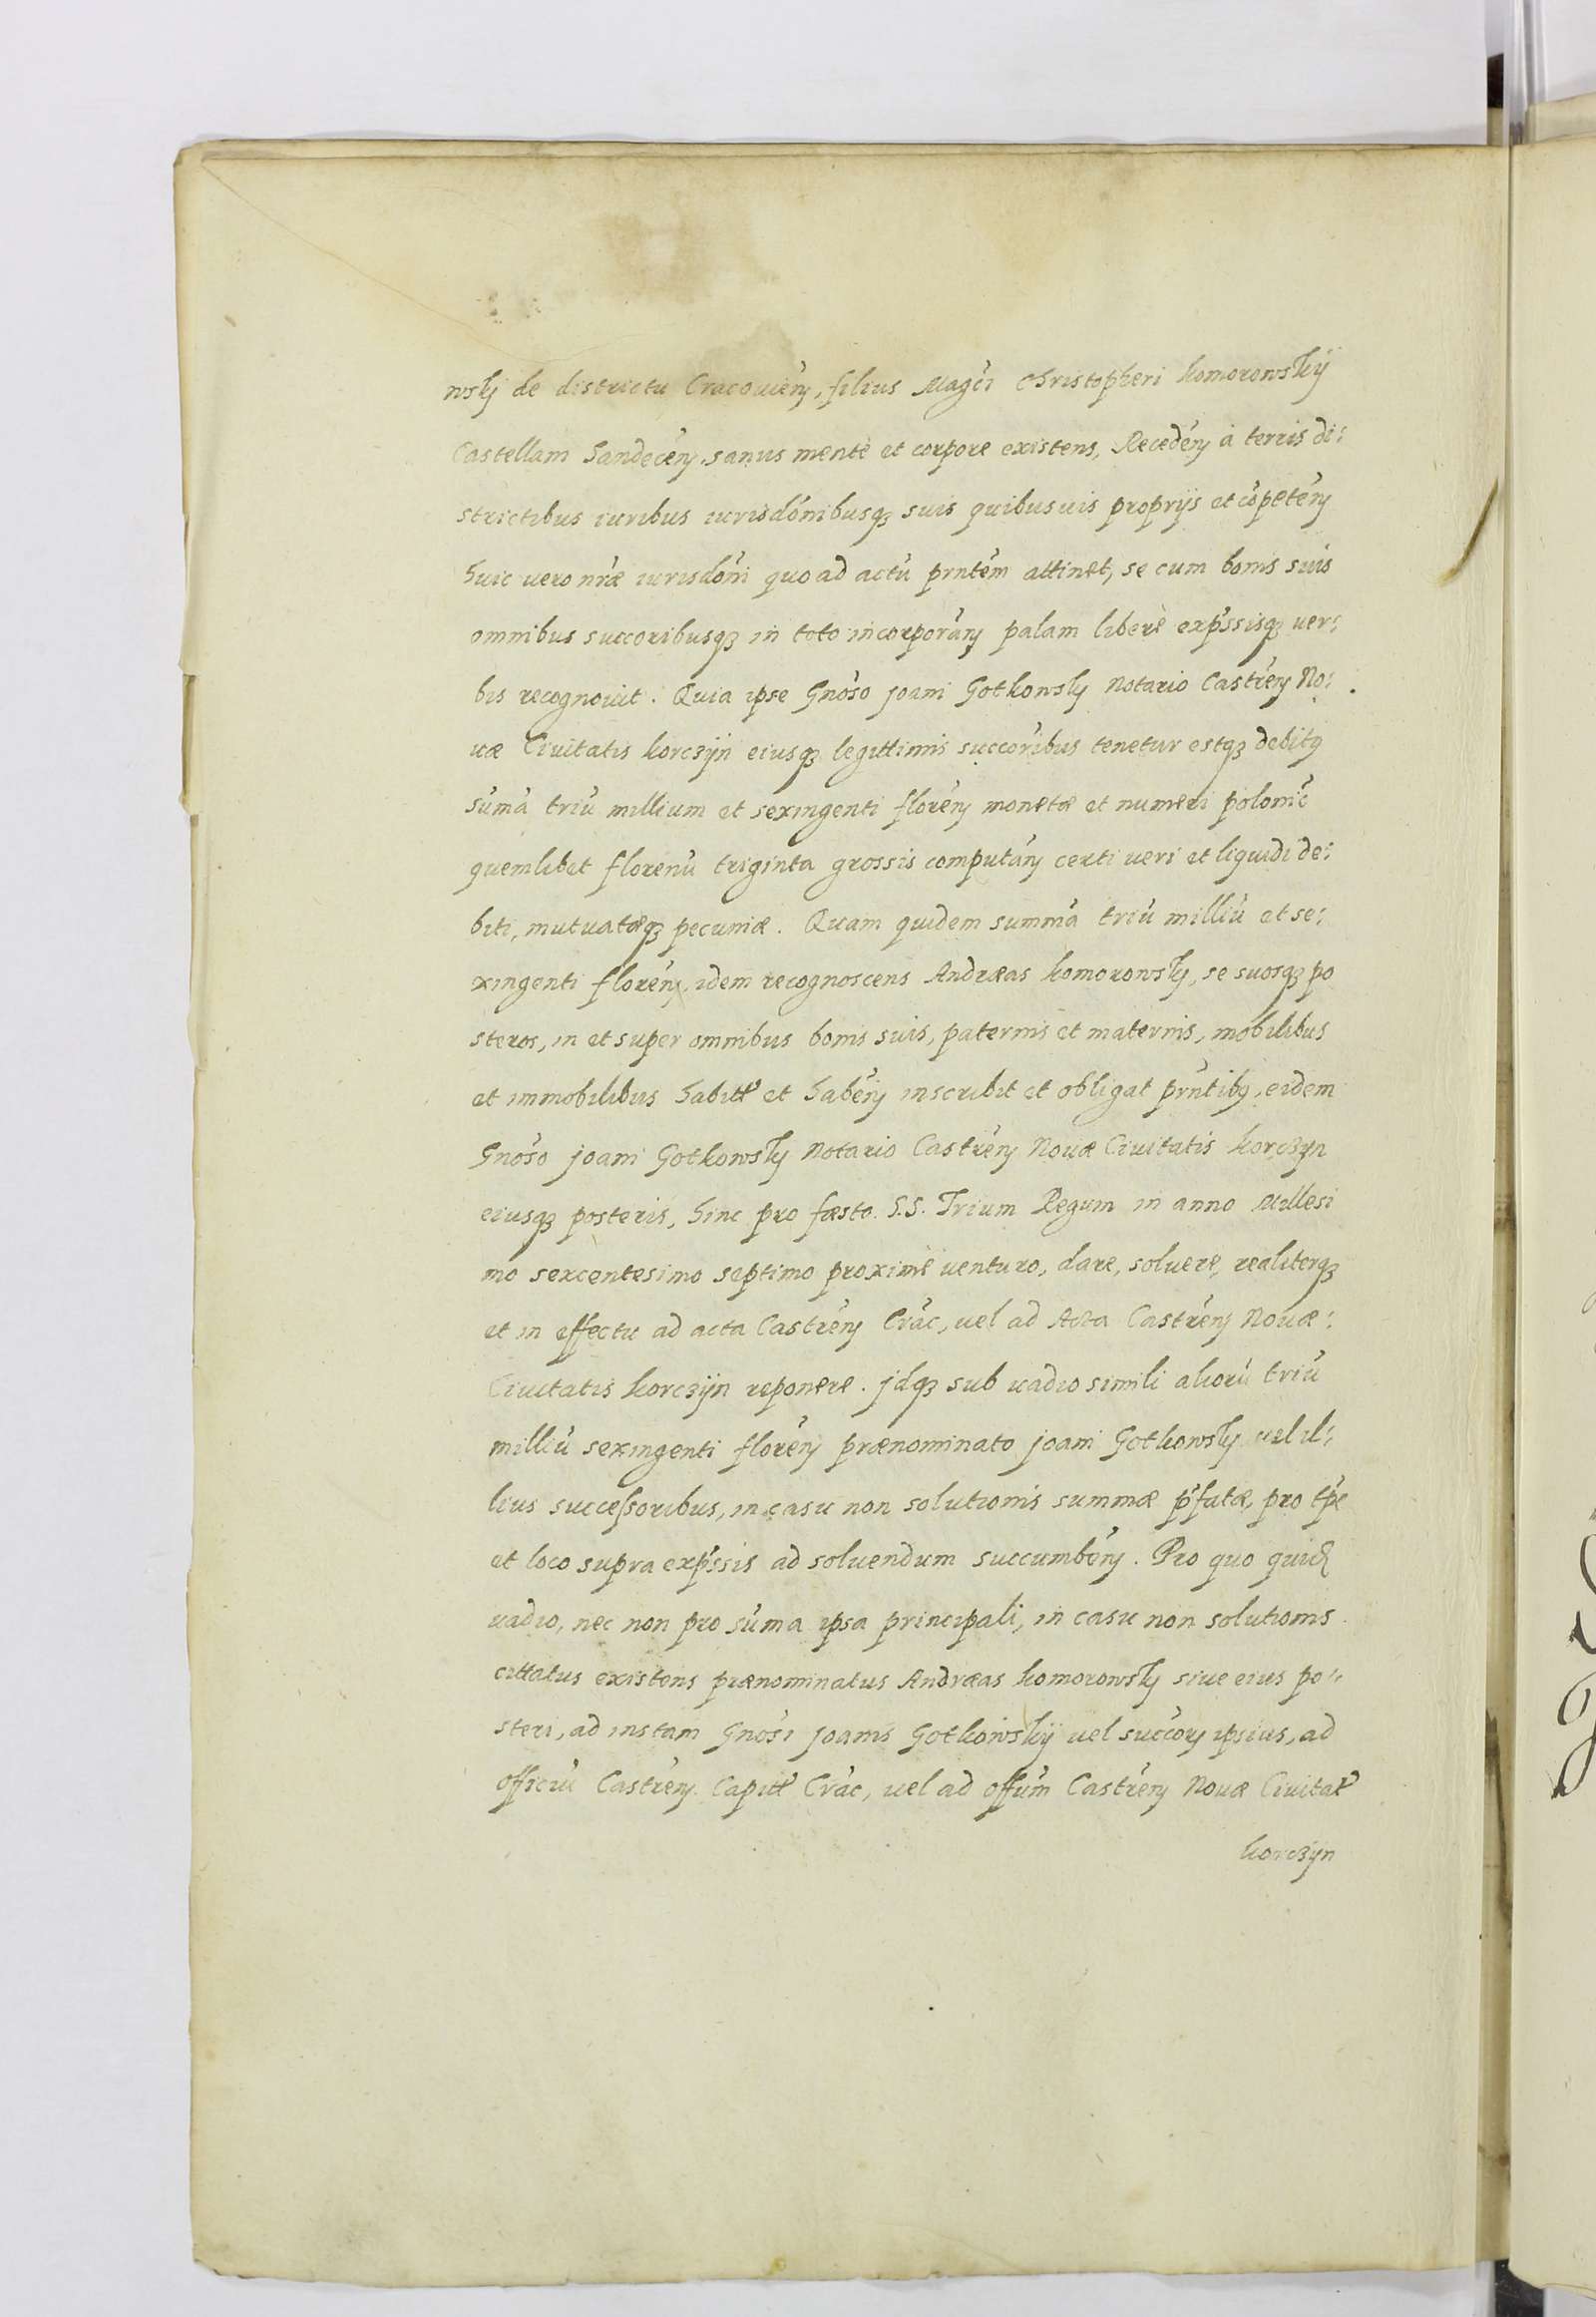 wskj de districtu Cracouień, filius Magći Christopheri Komorowskij
Castellam Sandeceń, sanus mente et corpore existens, Recedeń à terris di:
strictibus iuribus iurisdońibusq₃ suis quibusuis proprijs et cōpeteń
huic vero nrǽ iurisdońi quo ad actū prńtem attinet, se cum bonis suis
omnibus succoribusq₃ in toto incorporań palam liberè exprśsisq₃ ver:
bis recognouit. Quia ipse Gnoso Joani Gotkowsky Notario Castreń No:
uæ Ciuitatis Korczÿn eiusq₃ legittimis succoribus tenetur estq₃ debitꝰ
sūmā triū millium et sexingenti floreń monetæ et numeri polonić
quemlibet florenū triginta grossis computań certi veri et liquidi de:
biti, mutuatæq₃ pecuniæ. Quam quidem summā triū milliū et se:
xingenti floreń, idem recognoscens Andræas Komorowsky, se suosq₃ po
steros, in et super omnibus bonis suis, paternis et maternis, mobilibus
et immobilibus habitt' et habeń inscribit et obligat prńtibꝰ, eidem
Gnoso Joani Gotkowsky Notario Castreń Nouæ Ciuitatis Korczyn
eiusq₃ posteris, hinc pro fæsto S.S. Trium Regum in anno Millesi
mo sexcentesimo septimo proximè venturo, dare, soluere, realiterq₃
et in effectu ad acta Castreń Crać, vel ad Acta Castreń Nouæ:
Ciuitatis Korczÿn reponere. Jdq₃ sub vadio simili aliorū triū
milliū sexingenti floreń prænominato Joani Gotkowsky vel il:
lius successoribus, in casu non solutionis summæ p'fatæ, pro tp̄e
et loco supra exprśsis ad soluendum succumbeń. Pro quo quid
vadio, nec non pro sūma ipsa principali, in casu non solutionis
cittatus existens prænominatus Andræas Komorowsky siue eius po:
steri, ad instam Gnosi Joanis Gotkowskÿ vel succoꝝ ipsius, ad
officiū Castreń Capitt' Crać, vel ad offūm Castreń Nouæ Ciuitat'
Korczyn